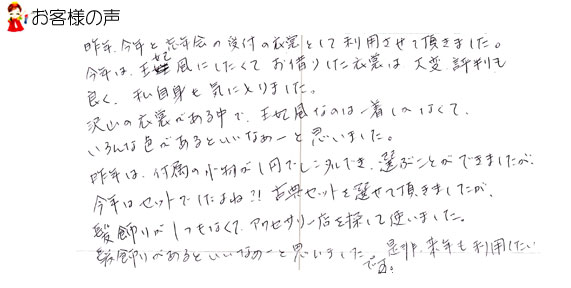 お客様の声
昨年、今年と忘年会の受付の衣裳として利用させて頂きました。
今年は、王妃風にしたくてお借りした衣裳は大変評判も
良く、私自身も気に入りました。
沢山の衣裳がある中で、王妃風なのは一着しかなくて、
いろんな色があるといいなぁーと思いました。
昨年は、付属の小物が1円でレンタルでき、選ぶことができましたが、
今年はセットでしたよね?! 古典セットを選ばせて頂きましたが、
髪飾りが1つもなくて、アクセサリー店を探して使いました。
髪飾りがあるといいなぁーと思いました。是非、来年も利用したい
です。